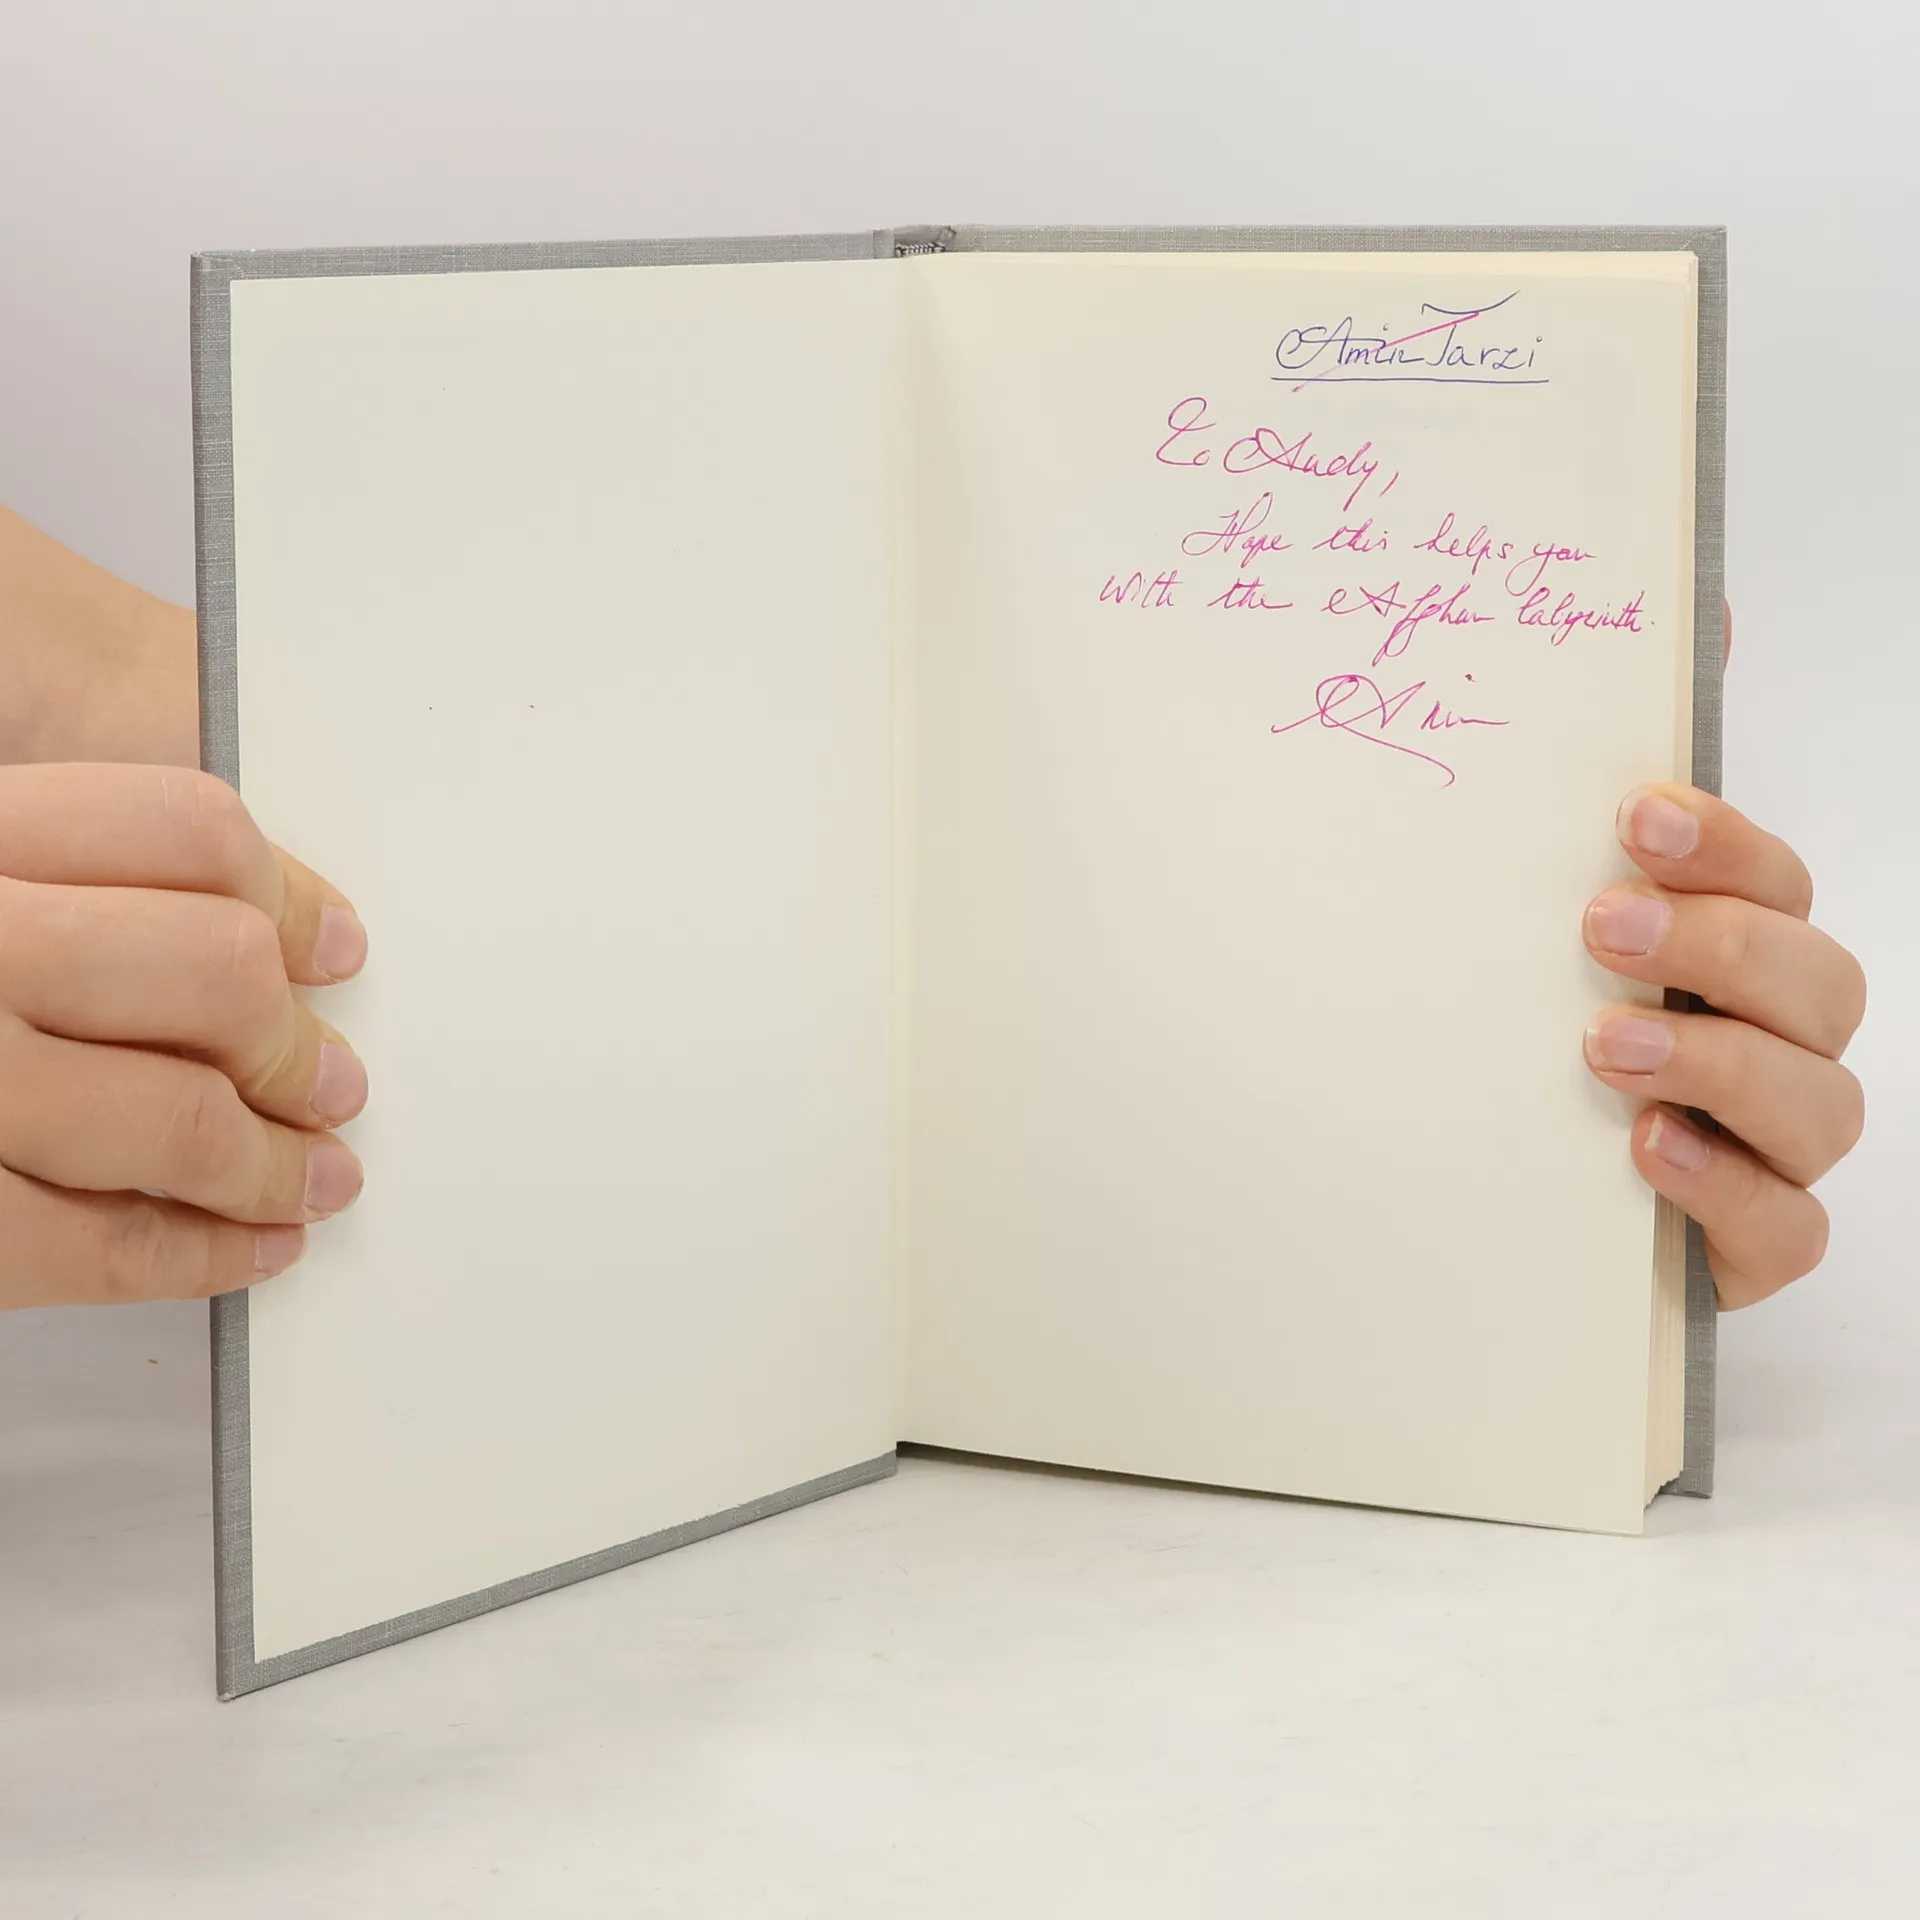 Amin Tarzi
To Andy,
Hope this helps you
with the Afghan labyrinth.
Amin